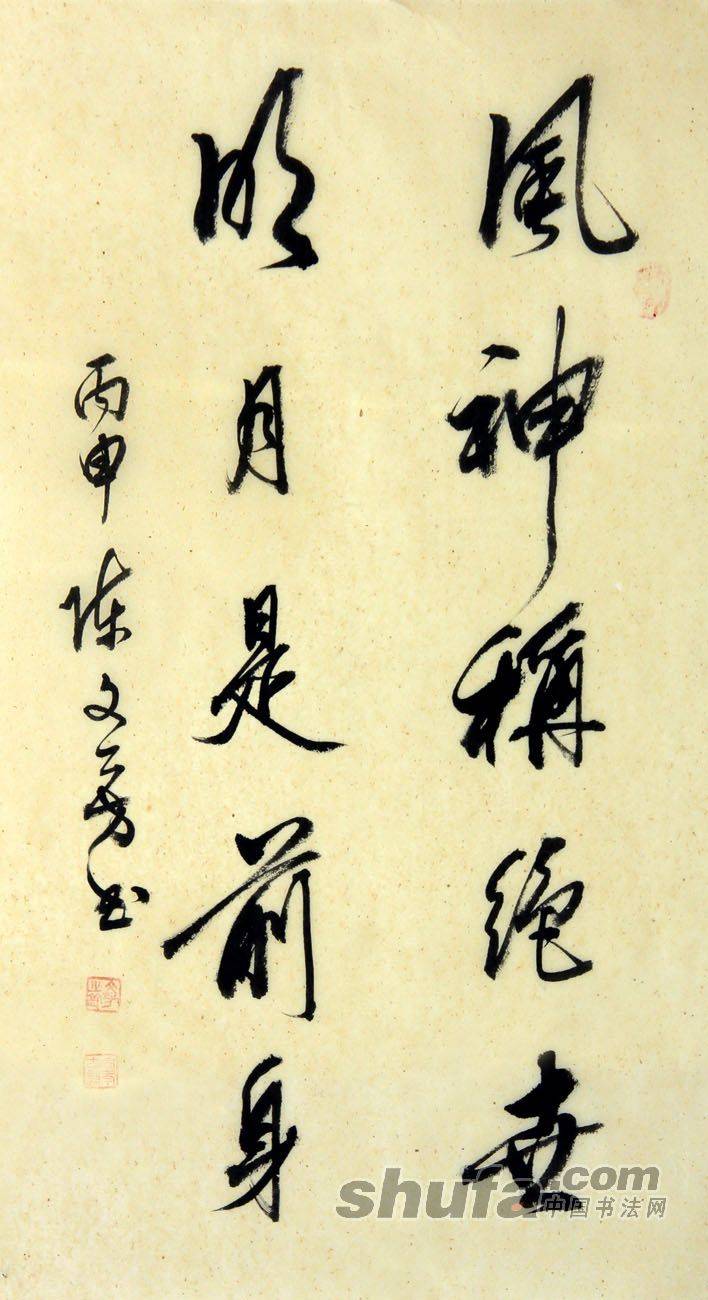 風神稱絕世
明月是前身
丙申 陳文芳書
shufa.com
中国书法网